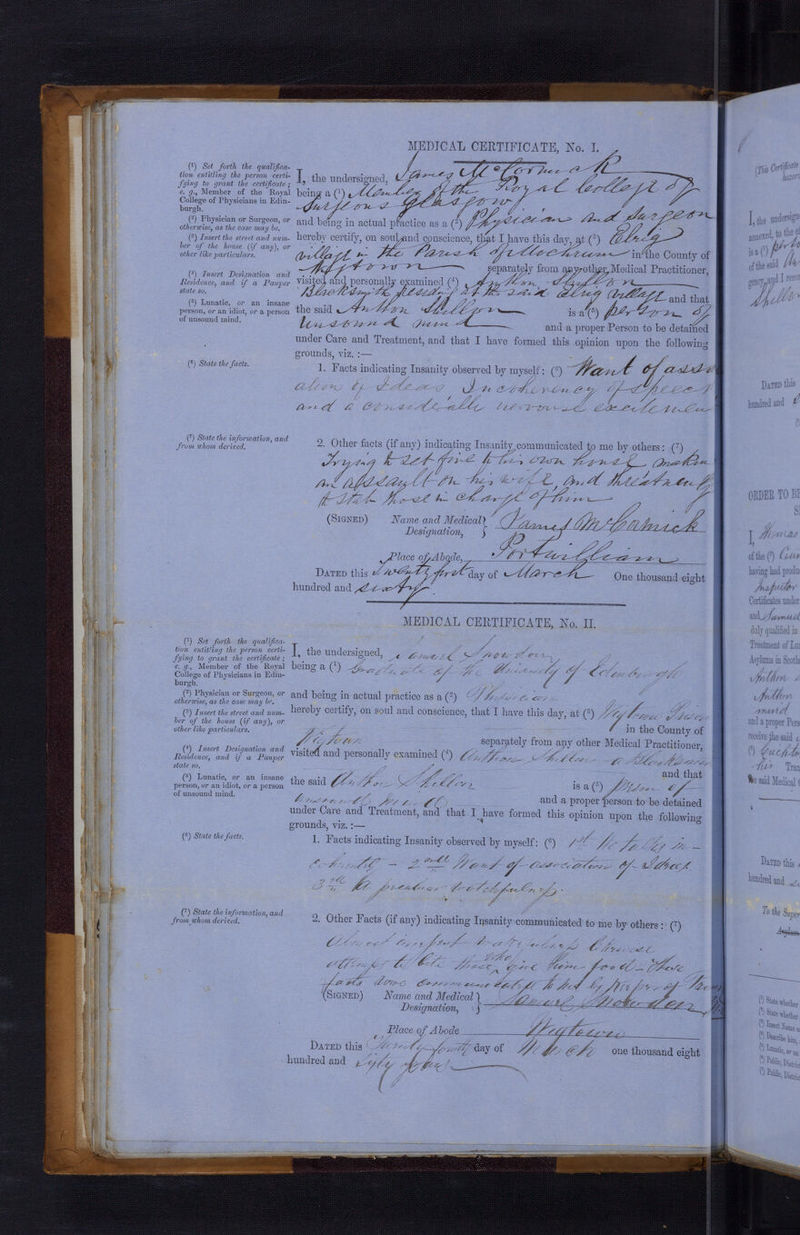 MEDICAL CERTIFICATE, No. I.
(1) Set forth the qualifica-
tion entitling the person certi-
fying to grant the certificate;
e. g., Member of the Royal
College of Physicians in Edin-
burgh.
(2) Physician or Surgeon, or
otherwise, as the case may be.
(3) Insert the street and num-
ber of the house (if any), or
other like particulars.
(4) Insert Designation and
Residence, and if a Pauper
state so.
(5) Lunatic, or an insane
person, or an idiot, or a person
of unsound mind.
(6) State the facts.
I, the undersigned, James McCormack
being a (1) Member of the Royal College of
Surgeons Glasgow
and being in actual practice as a (2) Physician and Surgeon
hereby certify, on soul and conscience, that I have this day, at (3) Elrig
village in the Parish of Mochrum in the County of
Wigtown separately from any other Medical Practitioner,
visited and personally examined (4) Anthon Skillon
Blacksmith residing at the said Elrig village and that
the said Anthon Skillon is a (5) person of
Unsound mind and a proper Person to be detained
under Care and Treatment, and that I have formed this opinion upon the following
grounds, viz. :—
1. Facts indicating Insanity observed by myself: (6) Want of
ation of Ideas Incoherency of speech
and a considerable nervous excitemen
(7) State the information, and
from whom derived.
2. Other facts (if any) indicating Insanity communicated to me by others: (7)
Trying to set fire to his own house makin
an assault on his wife, and threatening
to stab those in charge of him
(SIGNED) Name and Medical Designation, James McCormick
Place of Abode, Portwilliam
DATED this twenty first day of March One thousand eight
hundred and sixty
MEDICAL CERTIFICATE, No. II.
(1) Set forth the qualifica-
tion entitling the person certi-
fying to grant the certificate;
e. g., Member of the Royal
College of Physicians in Edin-
burgh.
(2) Physician or Surgeon, or
otherwise, as the case may be.
(3) Insert the street and num-
ber of the house (if any), or
other like particulars.
(4) Insert Designation and
Residence, and if a Pauper
state so.
(5) Lunatic, or an insane
person, or an idiot, or a person
of unsound mind.
(6) State the facts.
I, the undersigned, Samuel Snowden
being a (1) Graduate of the University of Edinburgh
and being in actual practice as a (2) Physician
hereby certify, on soul and conscience, that I have this day, at (3) Wigtown Prison
in the County of
Wigtown separately from any other Medical Practitioner,
visited and personally examined (4) Anthon Skillon a Blacksmith
and that
the said Anthon Skillon is a (5) person of
unsound mind and a proper person to be detained
under Care and Treatment, and that I have formed this opinion upon the following
grounds, viz. :—
1. Facts indicating Insanity observed by myself: (6) 1st He talks in-
coherently - 2nd Want of association of Ideas
3rd watchfulness.
(7) State the information, and
from whom derived.
2. Other Facts (if any) indicating Insanity communicated to me by others: (7)
attempts to bite those who give him food - These
facts communicated to me by
(SIGNED) Name and Medical Designation, Samuel Snowden
Place of Abode Wigtown
DATED this Twenty fourth day of March one thousand eight
hundred and Sixty
I, the undersign
of the said
DATED this
hundred and
ORDER TO BE
I, Thomas
of the (2)
having had produ
Inspector
Certificates under
and Samuel
duly qualified in
Treatment of Lu
Asylums in Scotla
Anthon
and a proper Pers
receive the said
Tran
the said Medical
DATED this
hundred and
To the Super
Asylum